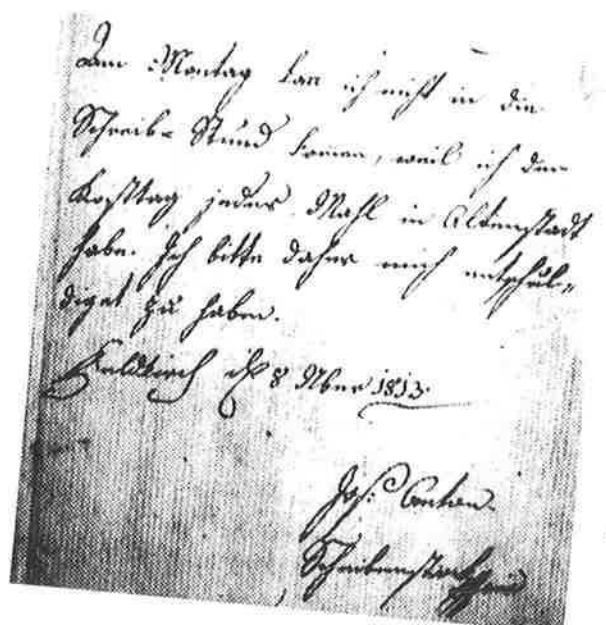 Am Montag kan ich nicht in die
Schreib= Stund komen, weil ich den
Kosttag jedes Mahl in Altenstadt
habe. Ich bitte daher mich entschul=
diget zu haben.
Feldkirch 8 9ber 1813.
Jos: Anton